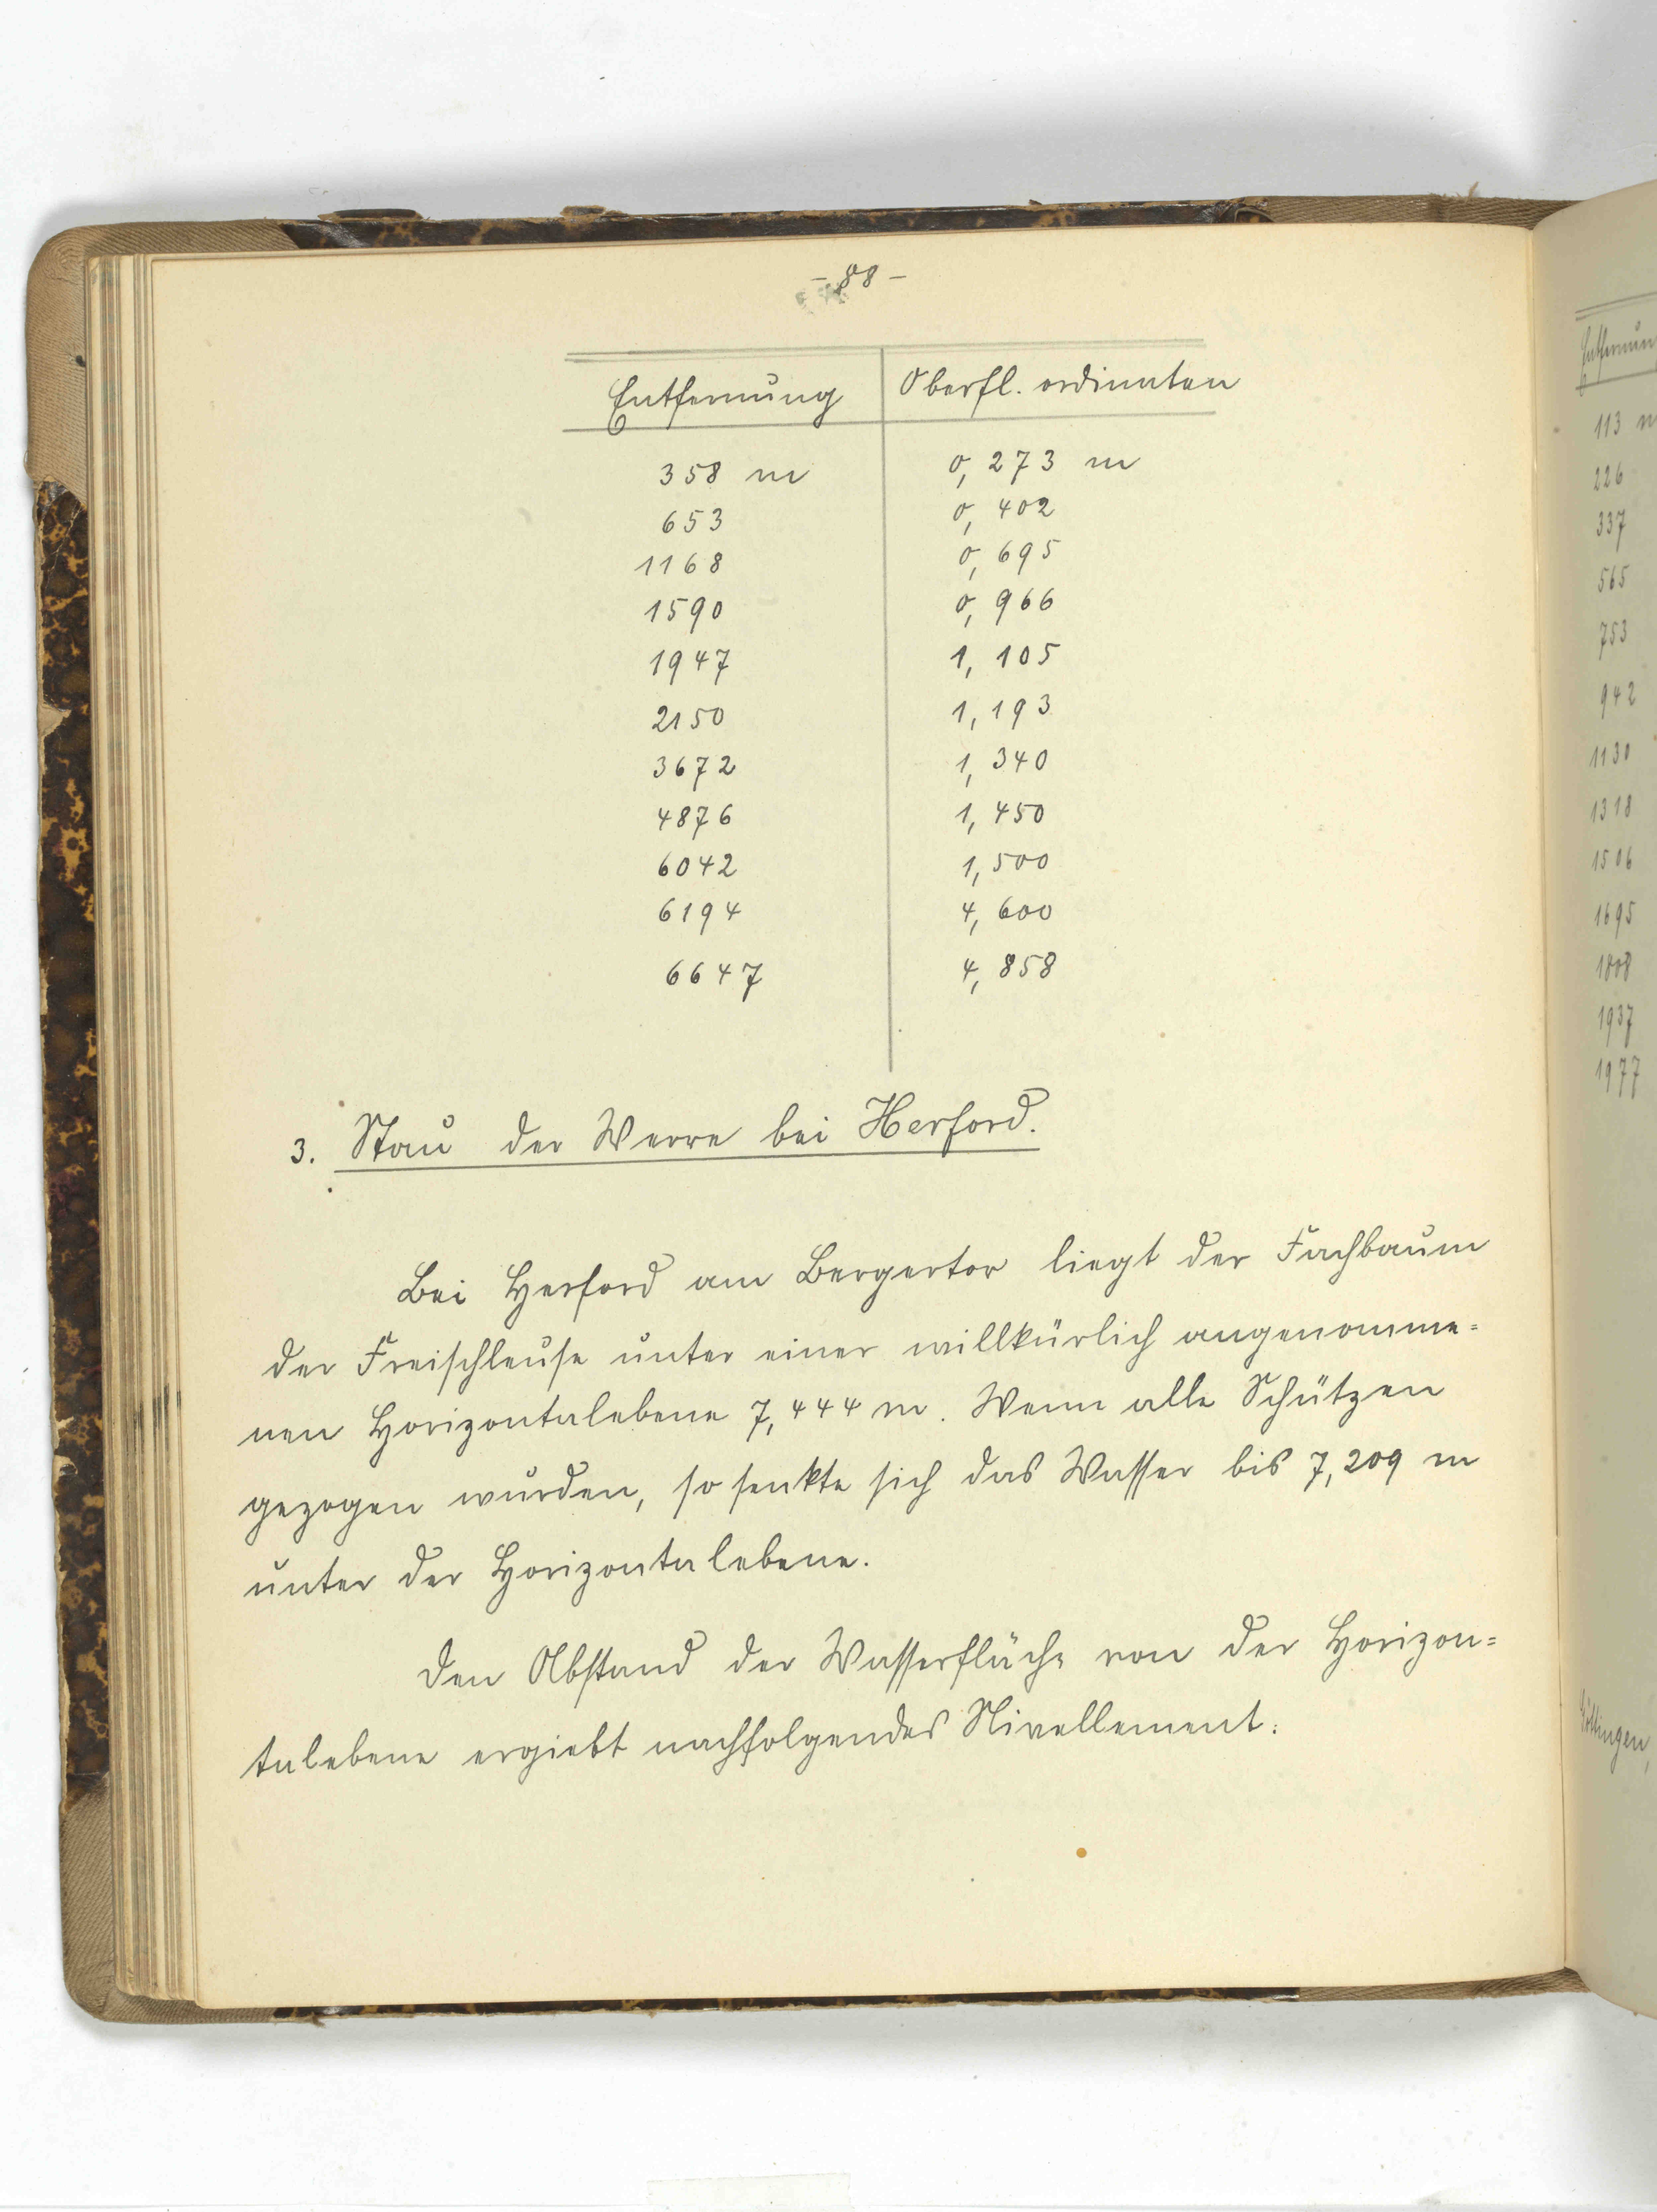 - 88 -
Entfernung Oberfl. ordinaten
358 m 0,273 m
653 0,402
1168 0,695
1590 0,966
1947 1,105
2150 1,193
3672 1,340
4876 1,450
6042 1,500
6194 4,600
6647 4,858
3. Stau der Werre bei Herford.
Bei Herford am Bergertor liegt der Fachbaum
der Freischleuse unter einer willkürlich angenomme=
nen Horizontalebene 7,444 m. Wenn alle Schützen
gezogen wurden, so senkte sich das Wasser bis 7,209 m
unter der Horizontalebene.
Den Abstand der Wasserfläche von der Horizon=
talebene ergiebt nachfolgendes Nivellement:
Entfernun
113 m
226
337
565
753
942
1130
1318
1506
1695
1808
1937
1977